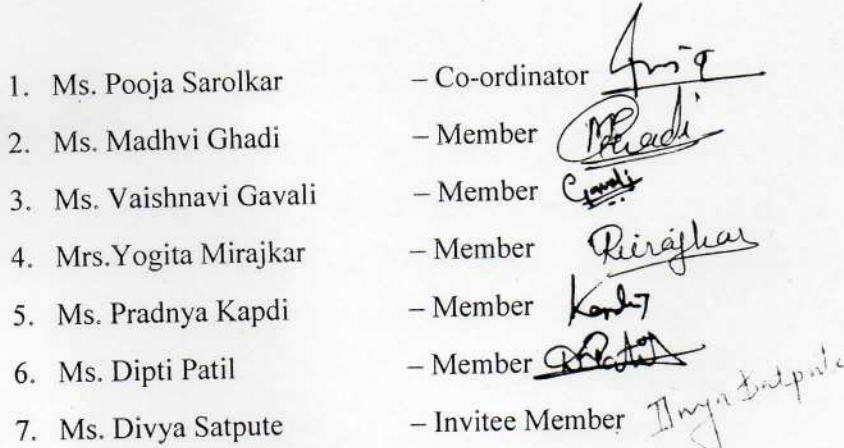 1. Ms. Pooja Sarolkar – Co-ordinator
2. Ms. Madhvi Ghadi – Member Ghadi
3. Ms. Vaishnavi Gavali – Member Gavali
4. Mrs.Yogita Mirajkar – Member Mirajkar
5. Ms. Pradnya Kapdi – Member
6. Ms. Dipti Patil – Member DPatil
7. Ms. Divya Satpute – Invitee Member Divya Satpute